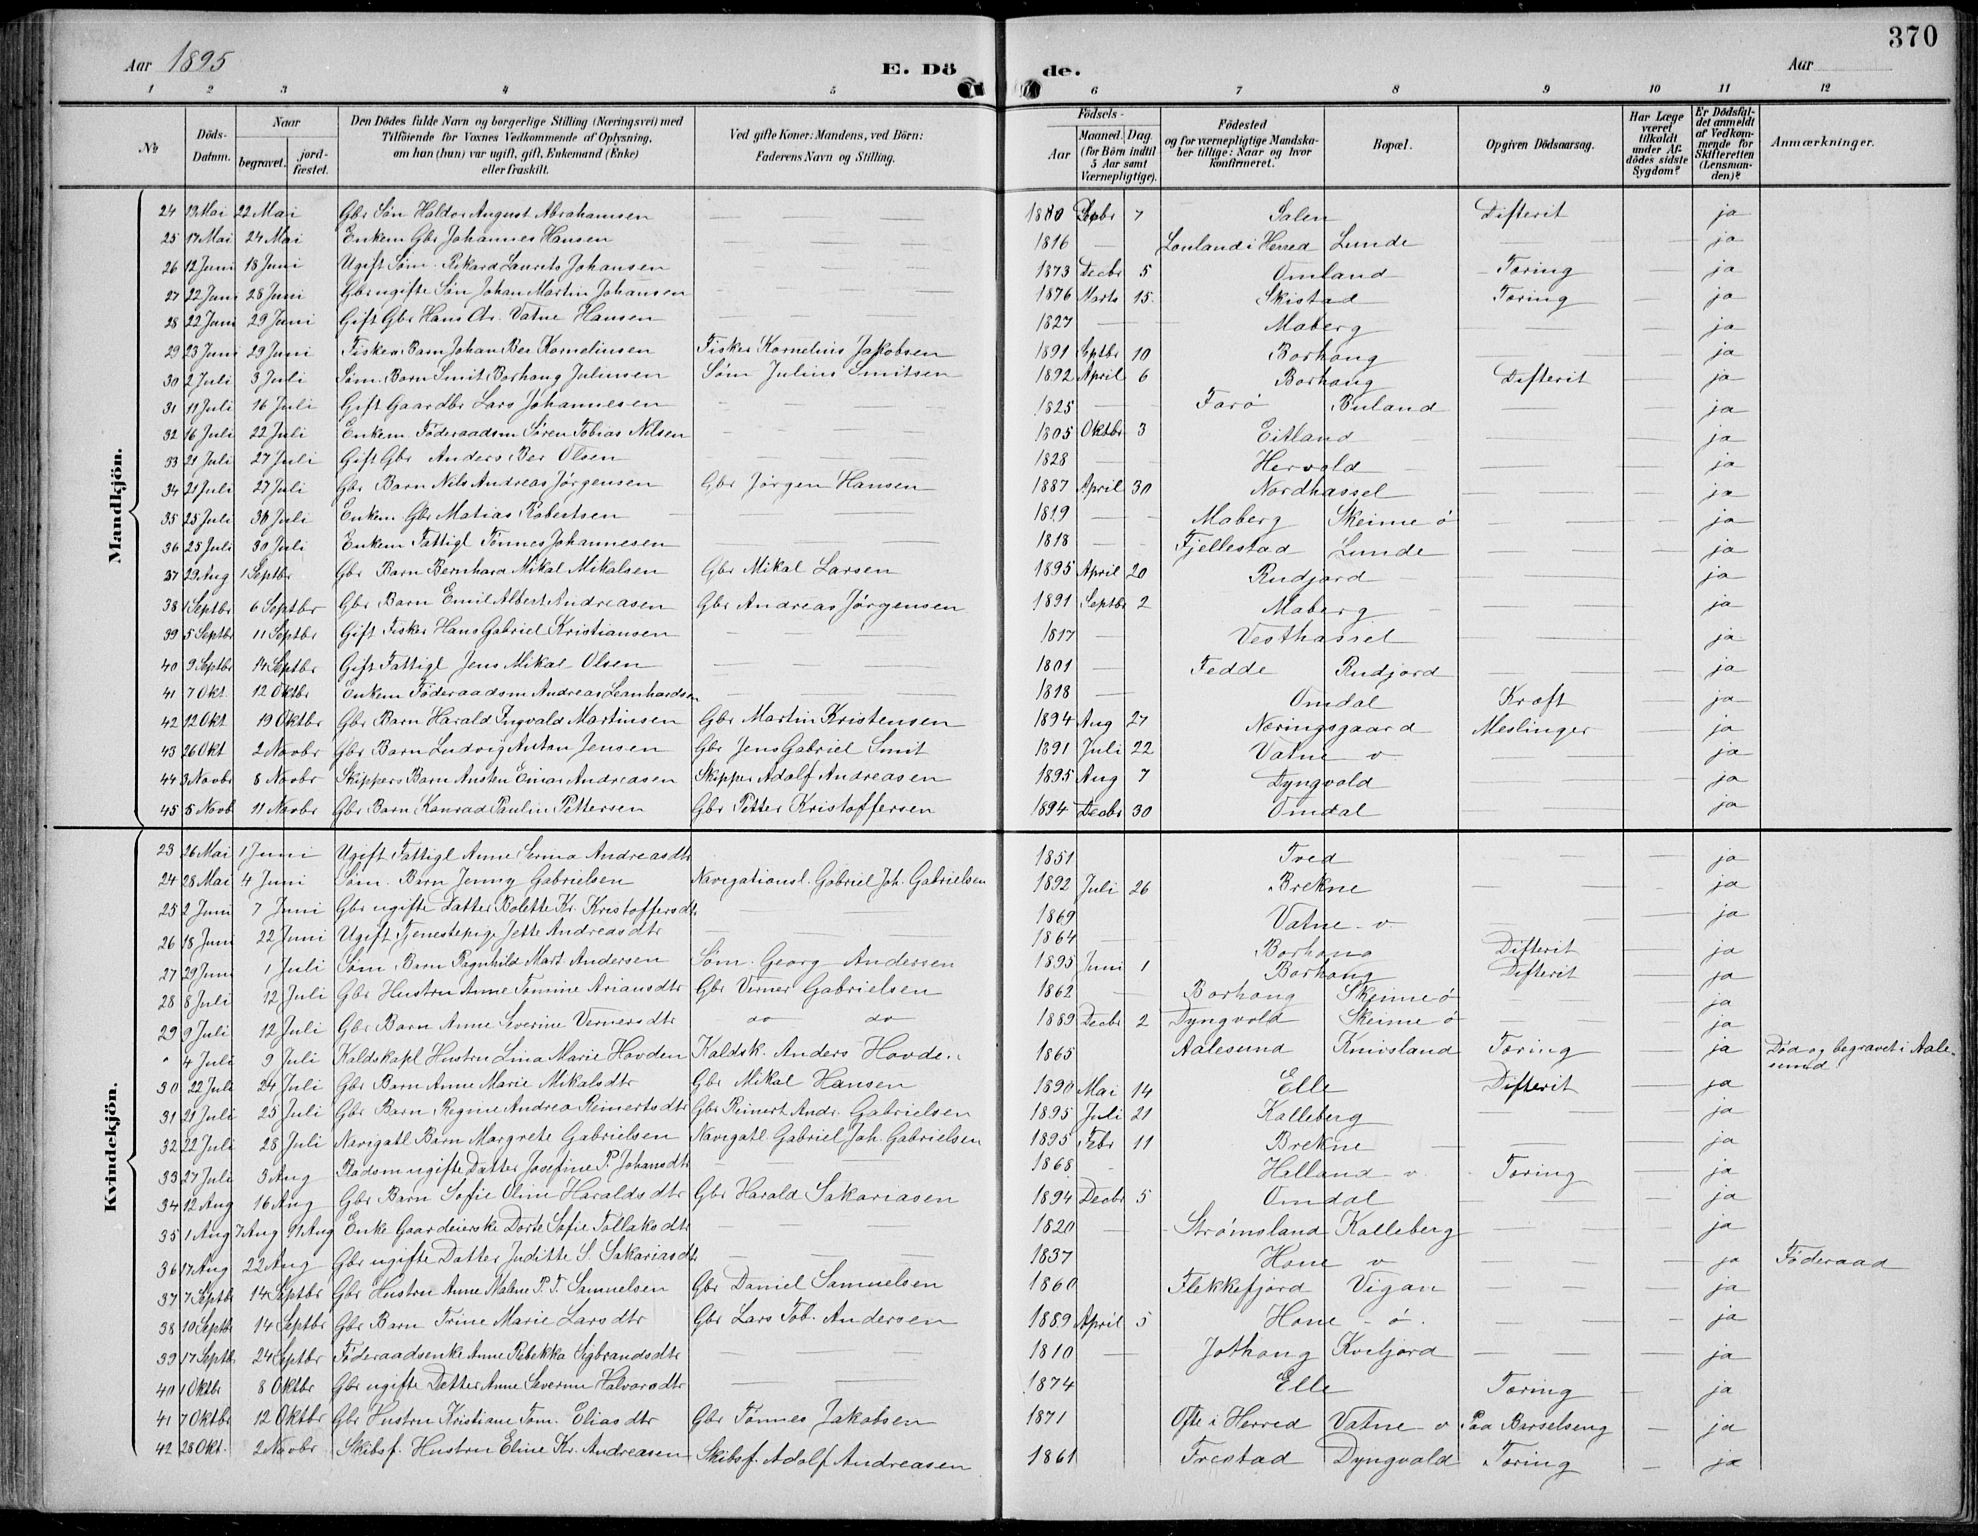 370
Aar 1895 E. Dö de. Aar
1 2 3 4 5 6 7 8 9 10 11 12
№ Döds-Datum. Naar begravet. jordfæstet. Den Dödes fulde Navn og borgerlige Stilling (Næringsvei) med Tilföiende for Voxnes Vedkommende af Oplysning, om han (hun) var ugift, gift, Enkemand (Enke) eller fraskilt. Ved gifte Koner: Mandens, ved Börn: Faderens Navn og Stilling. Födsels- Aar Maaned. Dag. (for Börn indtil 5 Aar samt Værnepligtige). Födested og for værnepligtige Mandskaber tillige: Naar og hvor konfirmeret. Bopæl. Opgiven Dödsaarsag. Har Læge været tilkaldt under Afdödes sidste Sygdom? Er Dödsfaldet anmeldt af Vedkommende for Skifteretten (Lensmanden)? Anmærkninger.
Mandkjön.
24 19 Mai 22 Mai Gbr Søn Haldor August Abrahamsen — — 1880 7 Salen Difterit — ja
25 17 Mai 24 Mai Enkem Gbr Johannes Hansen — — 1816 — Louland i Herred Lunde — — ja
26 12 Juni 18 Juni Ugift Søm. Rikard Laurits Johansen — — 1873 Decbr 5 Omland Tæring — ja
27 22 Juni 28 Juni Gbr ugifte Søn Johan Martin Johansen — — 1876 Marts 15 Skistad Tæring — ja
28 22 Juni 29 Juni Gift Gbr Hans Chr. Vatne Hansen — — 1827 — Maberg — — ja
29 23 Juni 29 Juni Fisker Barn Johan Ber Kornelinsen Fisker Kornelius Jakobsen 1891 Septbr 10 Borhaug — — ja
30 2 Juli 3 Juli Søm. Barn Smit Borhaug Julinsen Søm Julius Smitsen 1892 April 6 Borhaug Difterit — ja
31 11 Juli 16 Juli Gift Gaardbr Lars Johannesen — — 1825 — Farø Buland — — ja
32 16 Juli 22 Juli Enkem. Føderaadsm Søren Tobias Nilsen — — 1805 Oktbr 3 Eitland — — ja
33 21 Juli 27 Juli Gift Gbr Anders Ber Olsen — — 1828 — Hervold — — ja
34 21 Juli 27 Juli Gbr Barn Nils Andreas Jørgensen Gbr Jørgen Hansen 1887 April 30 Nordhassel — — ja
35 25 Juli 30 Juli Enkem. Gbr Matias Robertsen — — 1819 — Maberg Skeime ø — — ja
36 25 Juli 30 Juli Enkem Fattigl Tønnes Johannesen — — 1818 — Fjellestad Lunde — — ja
37 29 Aug 1 Septbr Gbr Barn Bernhard Mikal Mikalsen Gbr Mikal Larsen 1895 April 20 Rudjord — — ja
38 1 Septbr 6 Septbr Gbr Barn Emil Albert Andreasen Gbr Andreas Jørgensen 1891 Septbr 2 Maberg — — ja
39 5 Septbr 11 Septbr Gift Fisker Hans Gabriel Kristiansen — — 1817 — Vesthassel — — ja
40 9 Septbr 14 Septbr Gift Fattigl Jens Mikal Olsen — — 1801 — Fedde Rudjord — — ja
41 7 Okt. 12 Oktbr Enkem Føderaadsm Andreas Leonhardsen — — 1818 — Omdal Kræft — ja
42 12 Okt 19 Oktbr Gbr Barn Harald Ingvald Martinsen Gbr Martin Kristensen 1894 Aug 27 Næringsgaard Meslinger — ja
43 26 Okt 2 Novbr Gbr Barn Ludvig Anton Jensen Gbr Jens Gabriel Smit 1891 Juli 22 Vatne v — — ja
44 3 Novbr 8 Novbr Skippers Barn Einar Andreasen Skipper Adolf Andreasen 1895 Aug 7 Dyngvold — — ja
45 5 Novb 11 Novbr Gbr Barn Konrad Paulin Pettersen Gbr Petter Kristoffersen 1894 Decbr 30 Omdal — — ja
Kvindekjön.
23 26 Mai 1 Juni Ugift Fattigl Anne Serina Andreasdtr 1851 Tved — — ja
24 28 Mai 4 Juni Søm. Barn Jenny Gabrielsen Navigationsl. Gabriel Joh. Gabrielsen 1892 Juli 26 Brekne — — ja
25 2 Juni 7 Juni Gbr ugifte Datter Bolette Kr. Kristoffersdtr — — 1869 Vatne v — — ja
26 18 Juni 22 Juni Ugift Tjenestepige Jette Andreasdtr — — 1864 — Borhaug Difterit — ja
27 29 Juni 1 Juli Søm. Barn Ragnhild Mart. Andersen Søm. Georg Andersen 1895 Juni 1 Borhaug Difterit — ja
28 8 Juli 12 Juli Gbr Hustru Anne Tomine Ariansdtr Gbr Verner Gabrielsen 1862 — Borhaug Skeime ø — — ja
29 9 Juli 12 Juli Gbr Barn Anne Severine Vernersdtr do do 1889 Decbr 2 Dyngvold Skeime ø — — ja
" 4 Juli 9 Juli Kaldskapl Hustru Lina Marie Hovden Kaldsk. Anders Hovden 1865 Aalesund Knivsland Tæring — ja Død og begravet i Aalesund.
30 22 Juli 24 Juli Gbr Barn Anne Marie Mikalsdtr Gbr Mikal Hansen 1890 Mai 14 Elle Difterit — ja
31 21 Juli 25 Juli Gbr Barn Regine Andrea Reinertsdtr Gbr Reinert Andr. Gabrielsen 1895 Juli 21 Kalleberg — — ja
32 22 Juli 28 Juli Navigatl Barn Margrete Gabrielsen Navigatl Gabriel Joh. Gabrielsen 1895 Febr 11 Brekne — — ja
33 27 Juli 3 Aug ugifte Datter Josefine P. Johansdtr — — 1868 — Helland v. Tæring — ja
34 12 Aug 16 Aug Gbr Barn Sofie Oline Haraldsdtr Gbr Harald Sakariasen 1894 Decbr 5 Omdal — — ja
35 1 Aug 7 Aug 9 Aug Enke Gaardeierske Dorte Sofie Tollaksdtr — — 1820 — Strømsland Kalleberg — — ja
36 17 Aug 22 Aug Gbr ugifte Datter Juditte S. Sakariasdtr — — 1837 Hone v — — ja Føderaad
37 7 Septbr 14 Septbr Gbr Hustru Anne Malene P. T. Samuelsen Gbr Daniel Samuelsen 1860 Flekkefjord Vigan — — ja
38 10 Septbr 14 Septbr Gbr Barn Trine Marie Larsdtr Gbr Lars Tob. Andersen 1889 April 5 Hone - ø. — — ja
39 17 Septb 24 Septbr Føderaadsenke Anne Rebekka Sigbrandsdtr — — 1810 — Jothaug Kviljord — — ja
40 1 Oktbr 8 Oktbr Gbr ugifte Datter Anne Severine Halvorsdtr — — 1874 Elle Tæring — ja
41 7 Oktbr 12 Oktbr Gbr Hustru Kristiane Tom. Eliasdtr Gbr Tønnes Jakobsen 1871 Ofte i Herred Vatne v Paa Barselseng — ja
42 28 Okt. 2 Novbr Skibsf. Hustru Eline Kr. Andreasen Skibsf. Adolf Andreasen 1861 Frestad Dyngvold Tæring — ja